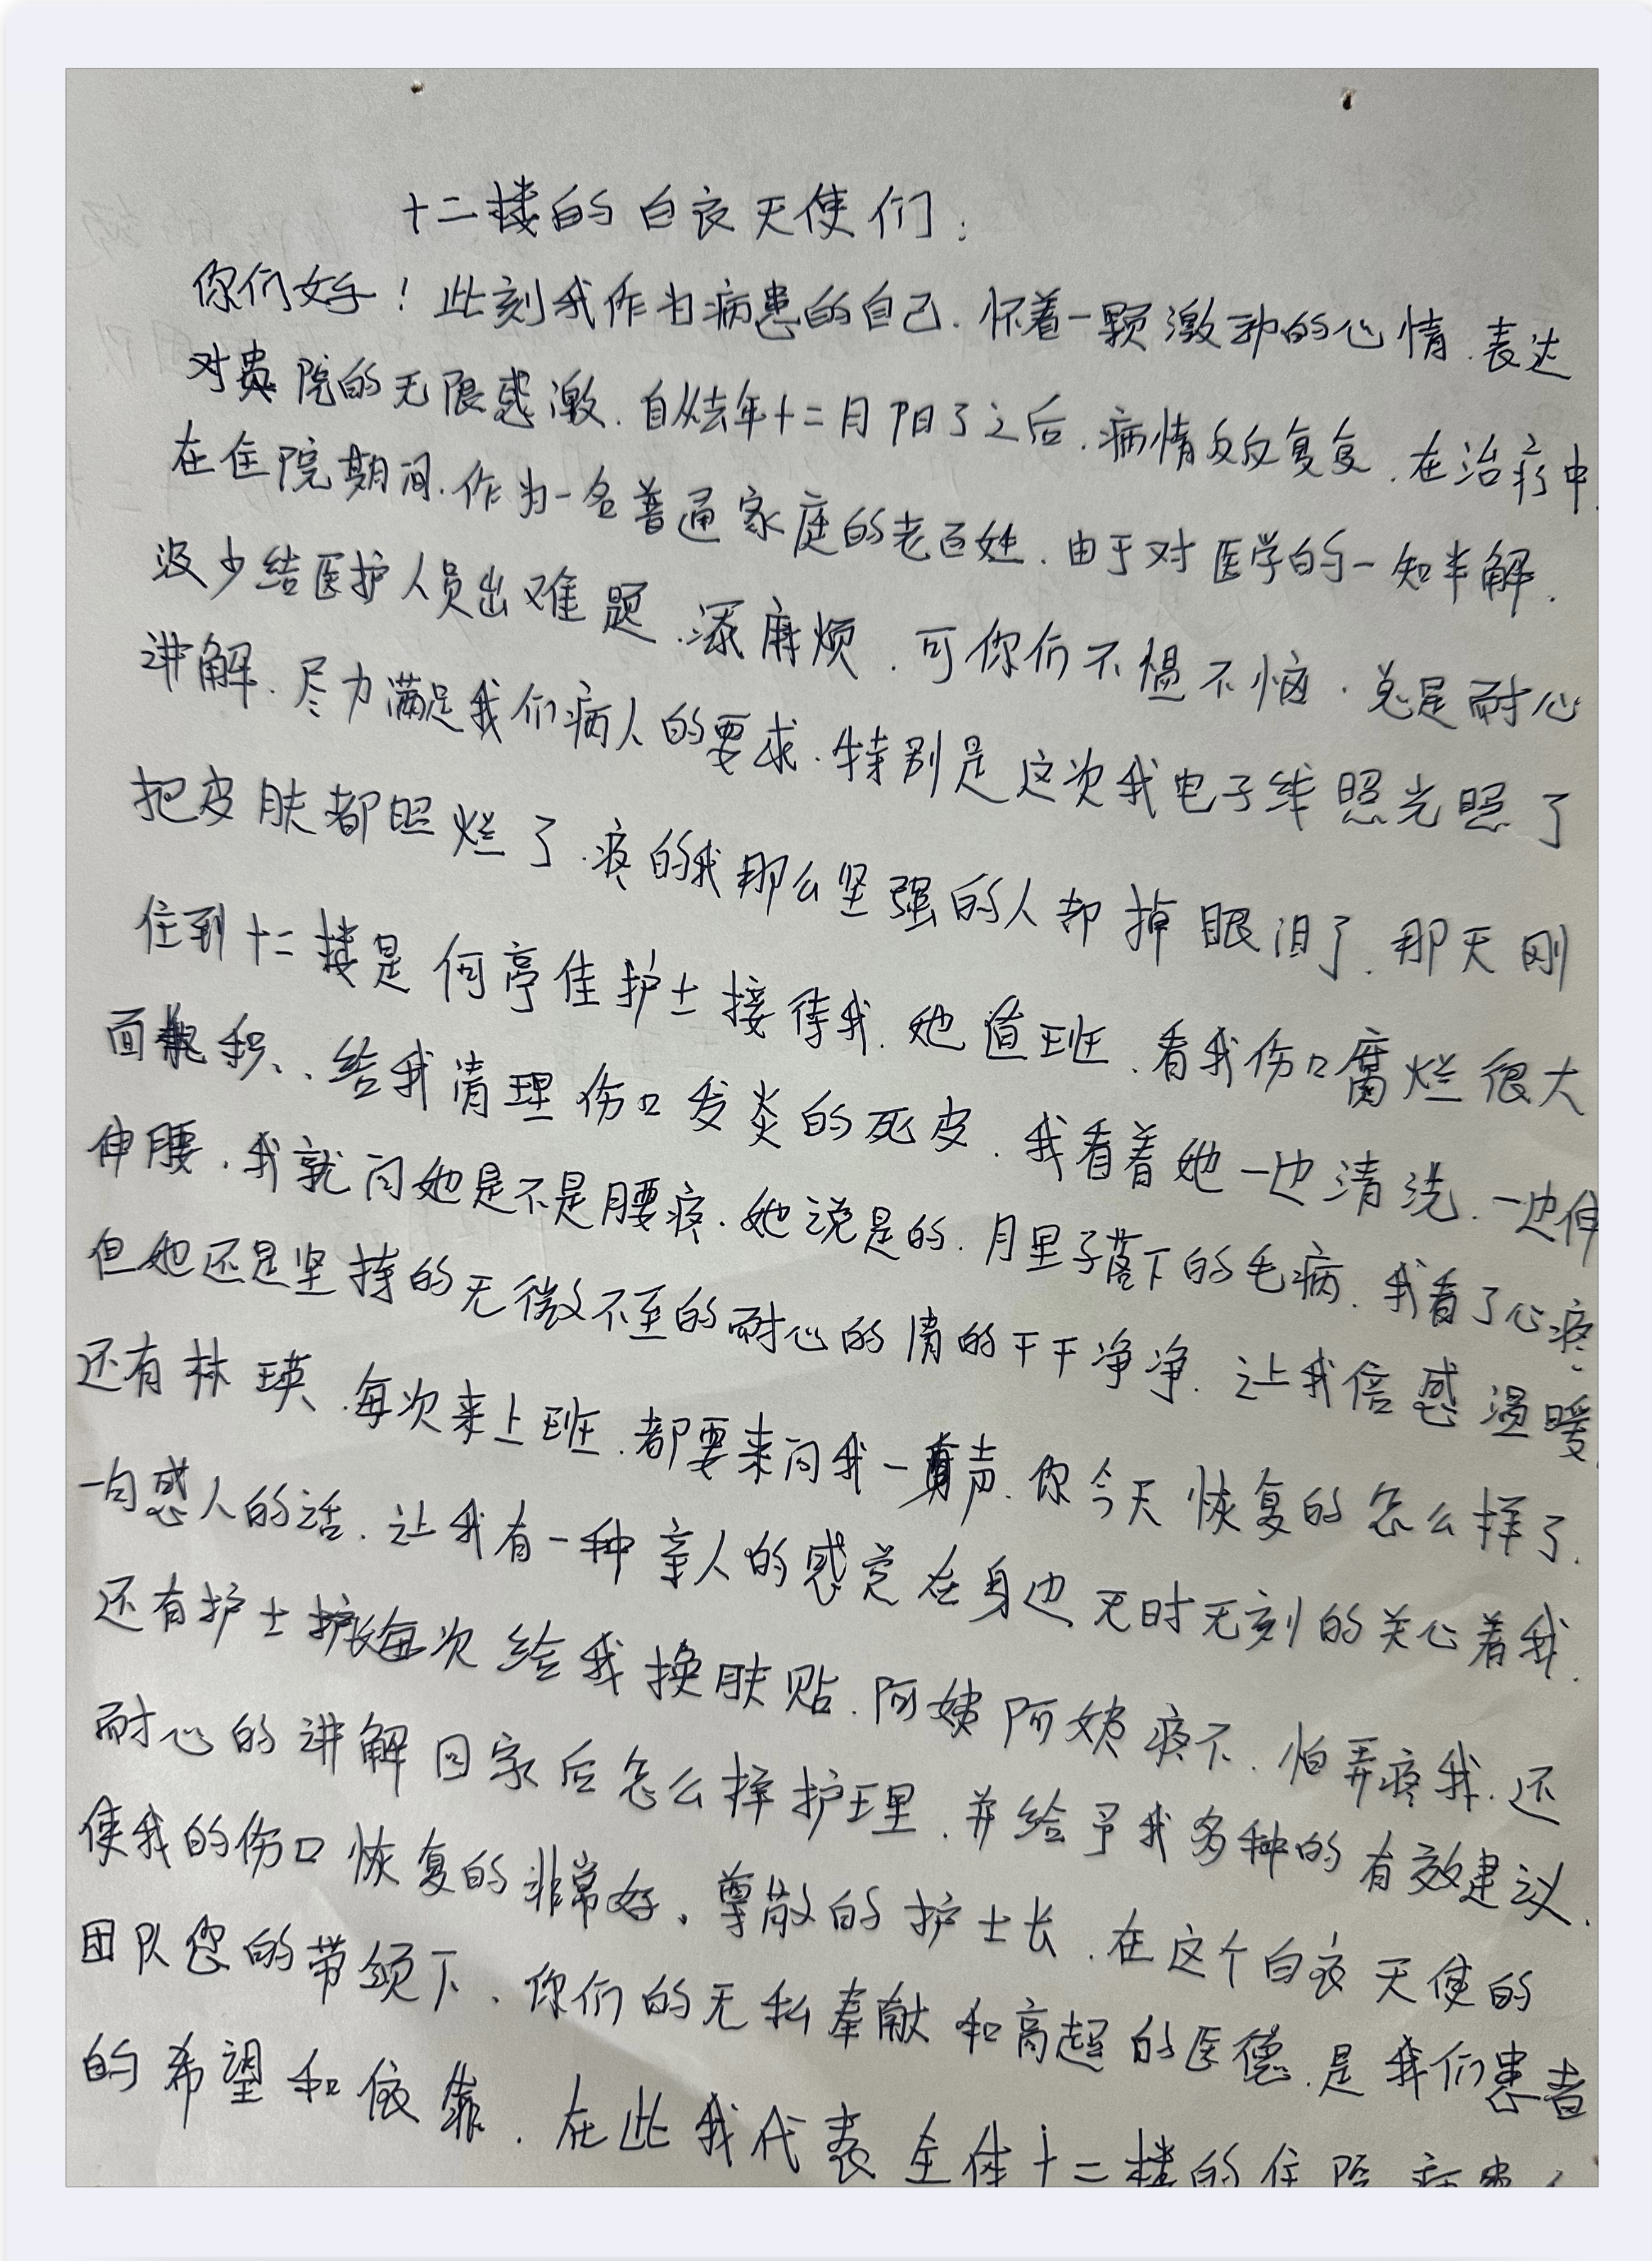 十二楼的白衣天使们:
你们好!此刻我作为病患的自己.怀着一颗激动的心情.表达
对贵院的无限感激.自从去年十二月阳了之后.病情反反复复.在治疗中.
在住院期间.作为一名普通家庭的老百姓.由于对医学的一知半解.
没少给医护人员出难题.添麻烦.可你们不愠不恼.总是耐心
讲解.尽力满足我们病人的要求.特别是这次我电子线照光照了
把皮肤都照烂了.疼的我那么坚强的人却掉眼泪了.那天刚
住到十二楼是何亭佳护士接待我.她值班.看我伤口腐烂很大
面积、.给我清理伤口发炎的死皮.我看着她一边清洗.一边伸
伸腰.我就问她是不是腰疼.她说是的.月里子落下的毛病.我看了心疼.
但她还是坚持的无微不至的耐心的清的干干净净.让我倍感温暖.
还有林瑛.每次来上班.都要来问我一声.你今天恢复的怎么样了.
一句感人的话.让我有一种亲人的感觉在身边无时无刻的关心着我.
还有护士长每次给我换肤贴.阿姨阿姨疼不.怕弄疼我.还
耐心的讲解回家后怎么样护理.并给予我多种的有效建议.
使我的伤口恢复的非常好。尊敬的护士长.在这个白衣天使的
团队您的带领下.你们的无私奉献和高超的医德.是我们患者
的希望和依靠.在此我代表全体十二楼的住院病患